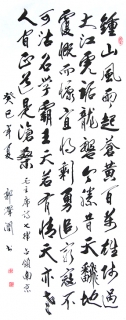 鍾山風雨起蒼黄百万雄师過
大江虎踞龍盤今勝昔天翻地
覆慨而慷宜將剩勇追窮寇不
可沽名学霸王天若有情天亦老
人間正道是滄桑 毛主席詩七律占領南京
癸巳年夏